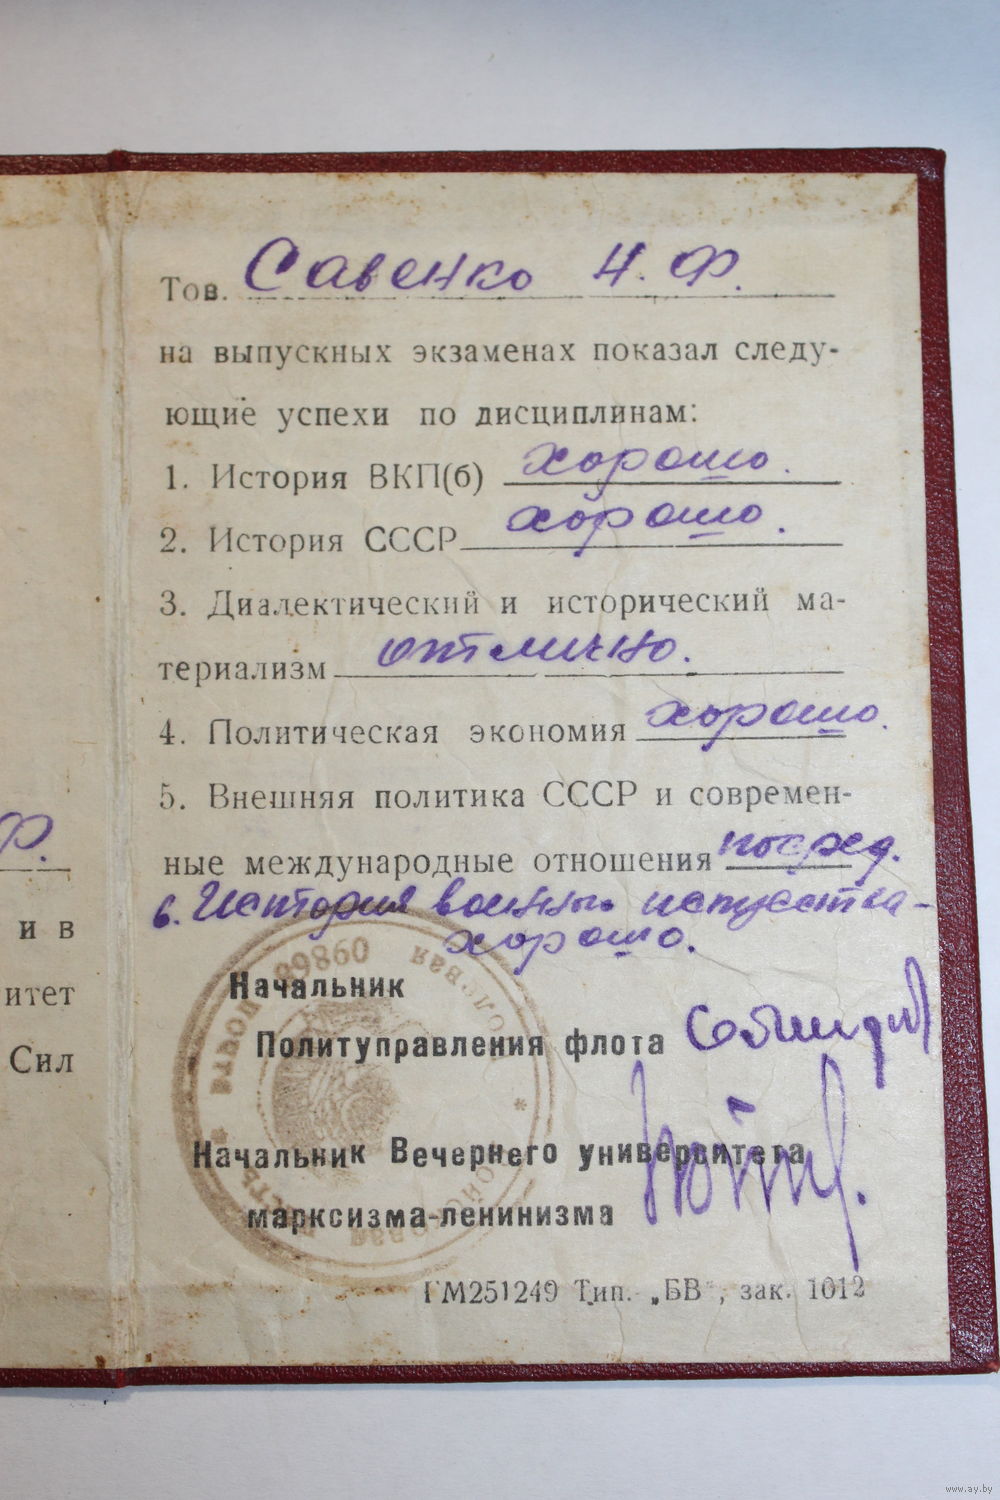 Ф.
и в
итет
Сил
Тов. Савенко Н. Ф.
на выпускных экзаменах показал следу-
ющие успехи по дисциплинам:
1. История ВКП(б) хорошо.
2. История СССР хорошо.
3. Диалектический и исторический ма-
териализм отлично.
4. Политическая экономия хорошо.
5. Внешняя политика СССР и современ-
ные международные отношения посред.
6. История военны искусства-
хорошо.
89860
Начальник
Политуправления флота
Начальник Вечернего университета
марксизма-ленинизма
ГМ251249 Тип. „БВ“, зак. 1012
www.ay.by